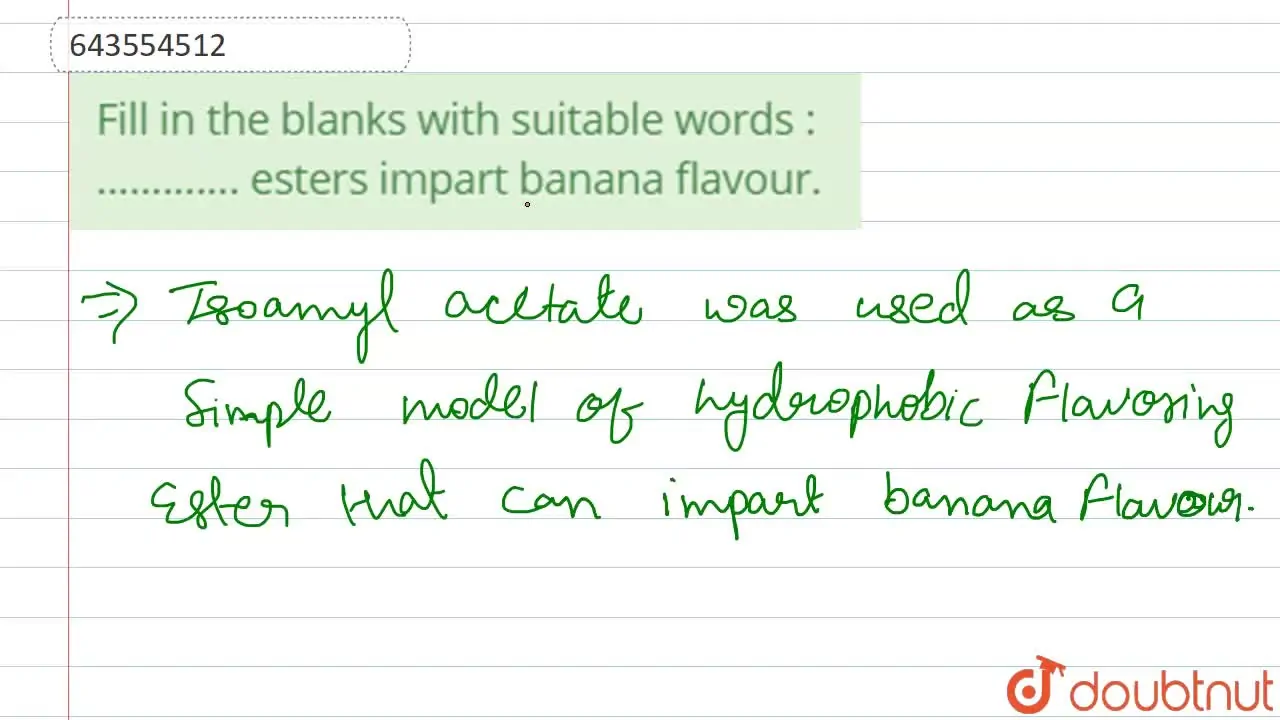 643554512
Fill in the blanks with suitable words :
............. esters impart banana flavour.
⇒ Isoamyl acetate was used as a
Simple model of hydrophobic flavoring
Ester that can impart banana flavour.
doubtnut